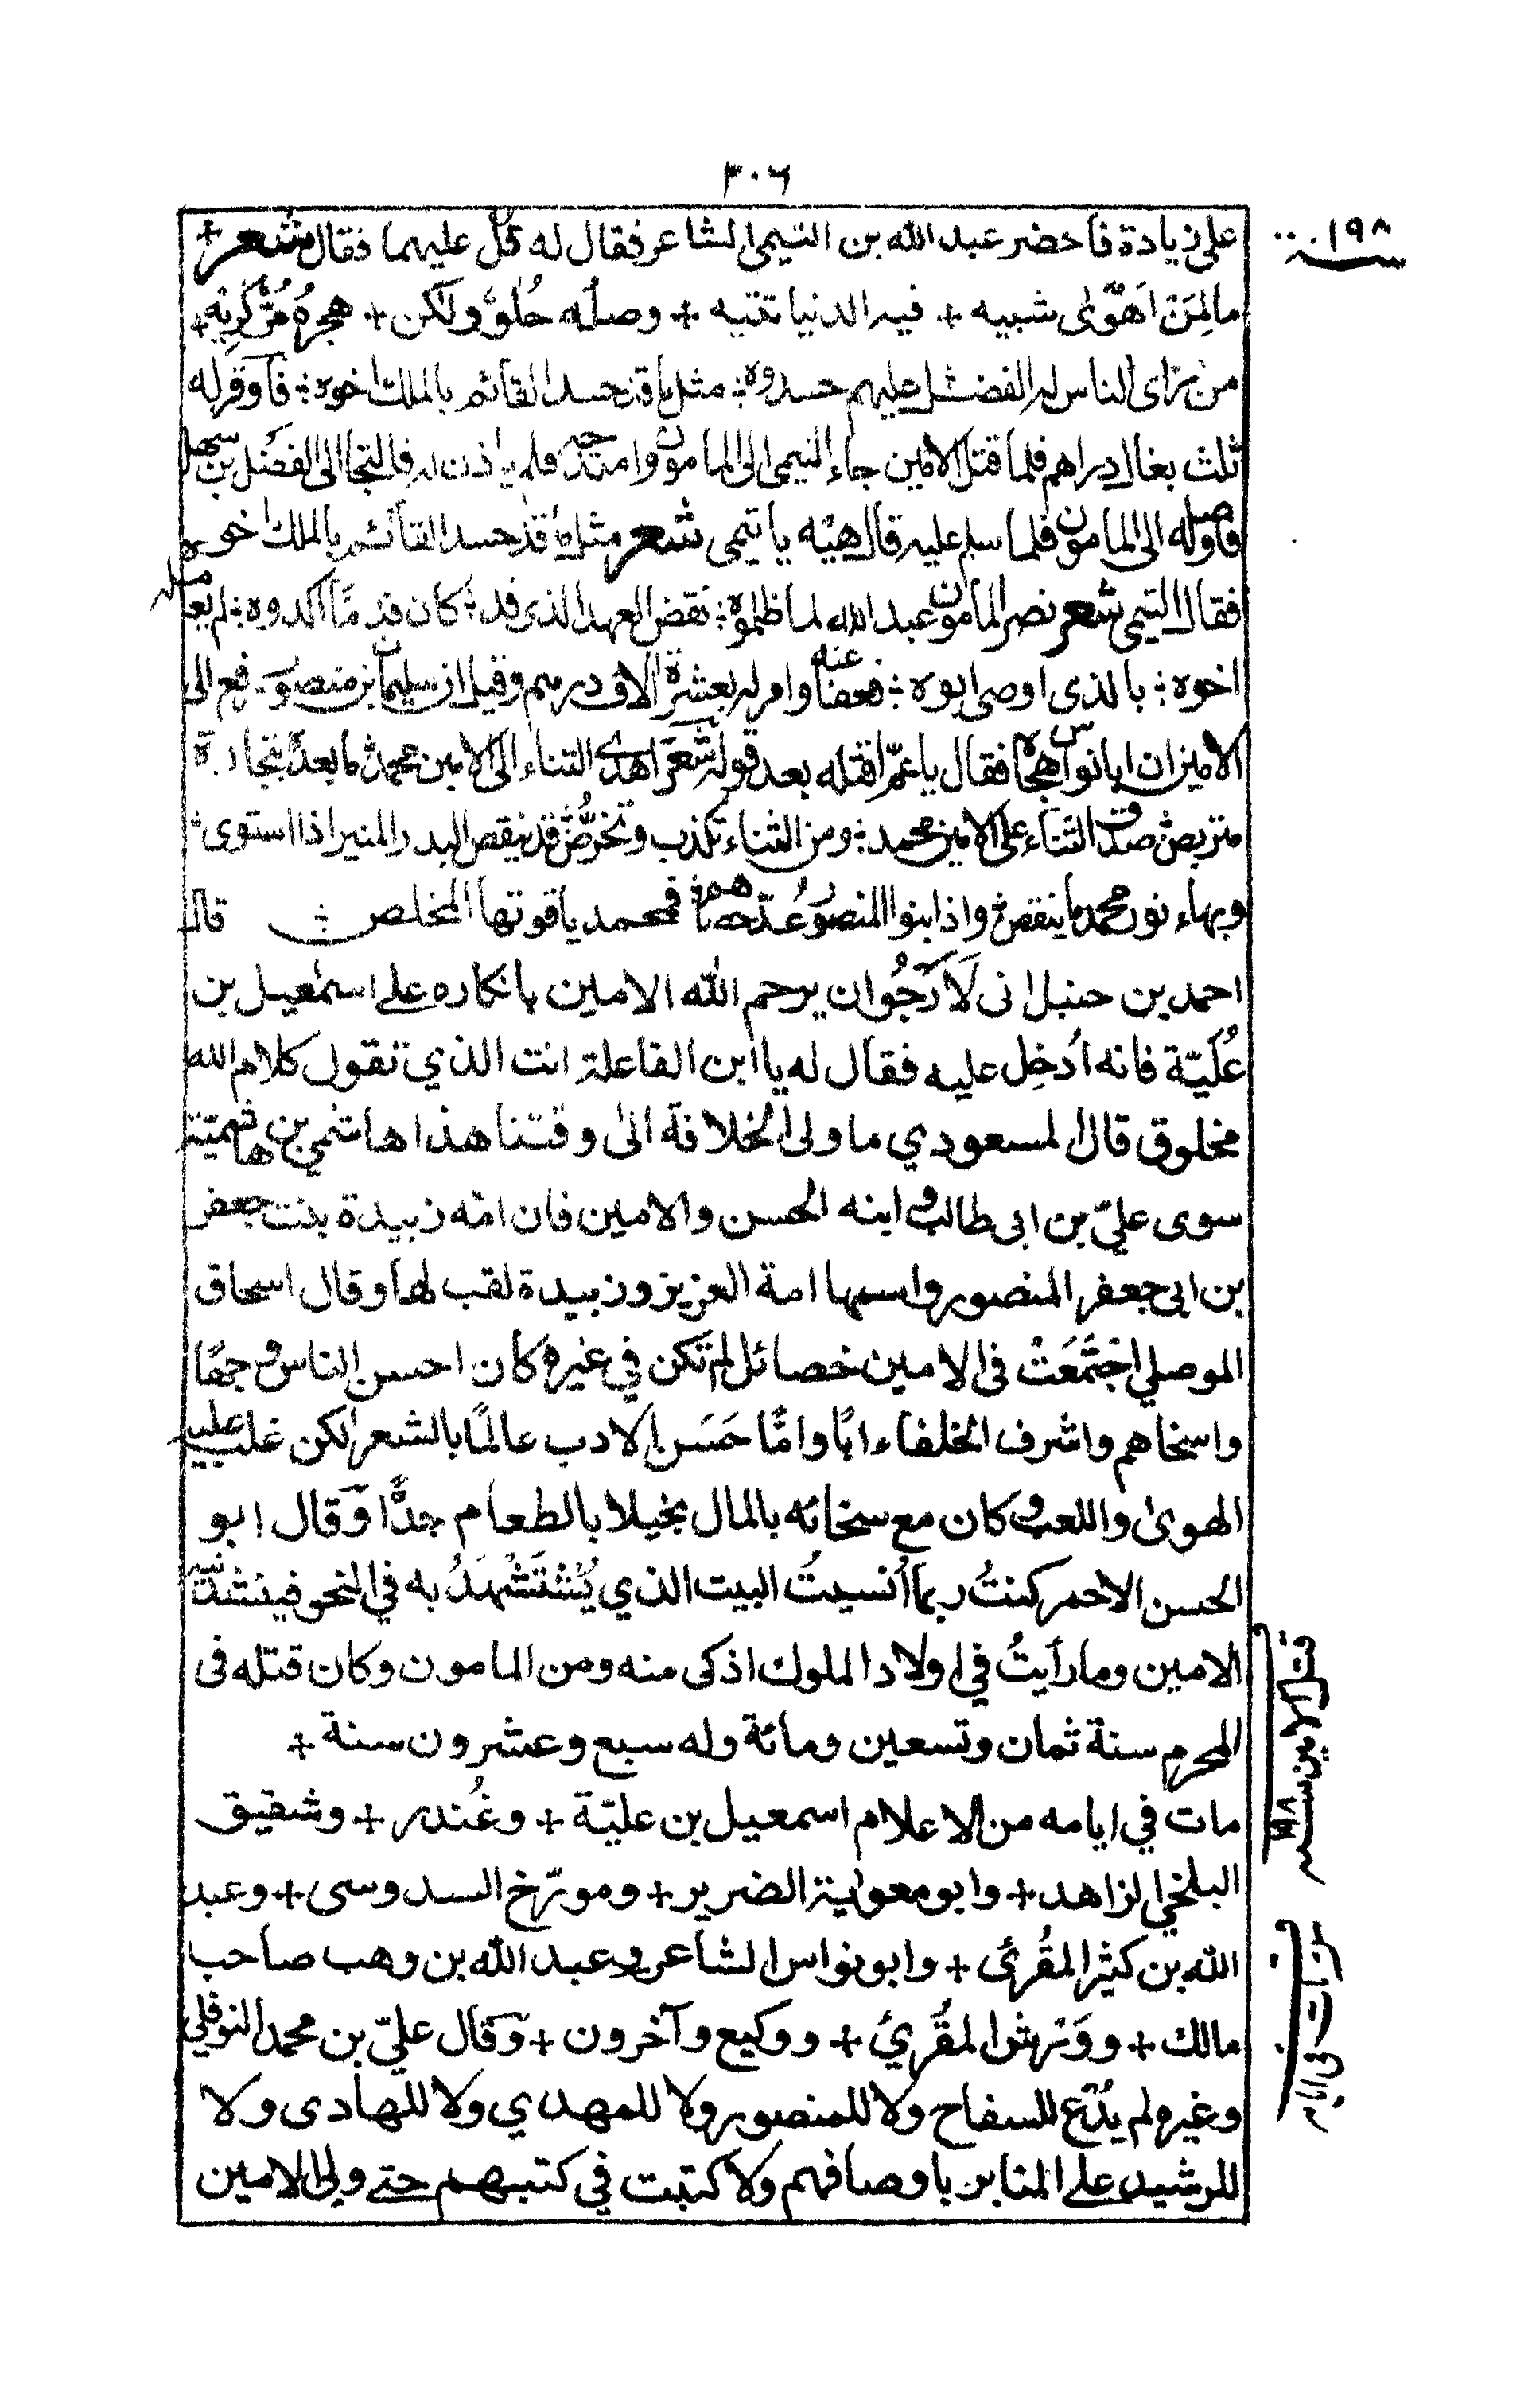 ٣٠٦
سنة ١٩٨
على زيادة فاحضر عبد الله بن التيمى الشاعر فقال له قل عليهما فقال شعر +
ما لِمَنْ اَهْوٰى شبيه + فيه الدنيا تتيه + وصله حُلوٌ ولكن + هجره مُرٌّ كريه +
من رَاى الناس له الفضل عليهم حسدوه ؛ مثل ما قد حسد القائم بالملك اخوه ؛ فاوقر له
ثلث بغال دراهم فلما قتل الامين جاء التيمى الى المامون وامتدحه فلم ياذن له فالتجا الى الفضل بن سهل
فاوصله الى المامون فلما سلم عليه قال هيه يا تيمى شعر مثل ما قد حسد القائم بالملك اخوه
فقال التيمى شعر نصر المامون عبد الله لما ظلموه ؛ نقض العهد الذى قد ؛ كان قدما اكدوه ؛ لم يعامله
اخوه ؛ بالذى اوصى ابوه ؛ فعفا عنه وامر له بعشرة آلاف درهم وقيل ان سليمان بن منصور رفع الى
الامين ان ابا نواس هجاه فقال يا عمّ اقتله بعد قوله شعر اهدى الثناء الى الامين محمد ما بعده بتجارة
متربص صدق الثناء على الامين محمد ؛ ومن الثناء تكذب وتخرُّص قد ينقص البدر المنير اذا استوى
وبهاء نور محمد ما ينقص واذا بنوا المنصور عدّ حصاهم ؛ فمحمد ياقوتها المخلص ؛ قال
احمد بن حنبل انى لَاَرْجُوان يرحم الله الامين بانكاره على اسمعيل بن
عُلَيّة فانه اُدخِل عليه فقال له يا ابن الفاعلة انت الذي تقول كلام الله
مخلوق قال المسعودي ما ولى الخلافة الى وقتنا هذا هاشمي بن هاشميّة
سوى عليّ بن ابى طالب و ابنه الحسن والامين فان امّه زبيدة بنت جعفر
بن ابى جعفر المنصور واسمها امة العزيز وزبيدة لقب لها وقال اسحاق
الموصلي اجْتَمَعَتْ فى الامين خصائل لم تكن في غيره كان احسن الناس وجهًا
واسخاهم واشرف الخلفاء ابًا وامًّا حَسَن الادب عالمًا بالشعر لكن غلب عليه
الهوى واللعب وكان مع سخائه بالمال بخيلا بالطعام جدًّا وَقال ابو
الحسن الاحمر كنتُ ربما اُنسيتُ البيت الذي يُسْتَشْهَدُ به في النحو فينشدنيه
الامين وما رأيتُ في اولاد الملوك اذكى منه ومن المامون وكان قتله فى
المحرم سنة ثمان وتسعين ومائة وله سبع وعشرون سنة +
مات في ايامه من الاعلام اسمعيل بن عليّة + وغُندر + وشقيق
البلخي الزاهد + وابو معوٰية الضرير + ومورّخ السدوسى + وعبد
الله بن كثير المقُرئ + وابو نواس الشاعر وعبد الله بن وهب صاحب
مالك + ووَرْش المقُرئ + ووكيع وآخرون + وَقال عليّ بن محمد النوفلي
وغيره لم يُدْع للسفاح ولا للمنصور ولا للمهدي ولا للهادى ولا
للرشيد على المنابر باوصافهم ولا كتبت في كتبهم حتى ولى الامين
قتل الامين سنة ١٩٨